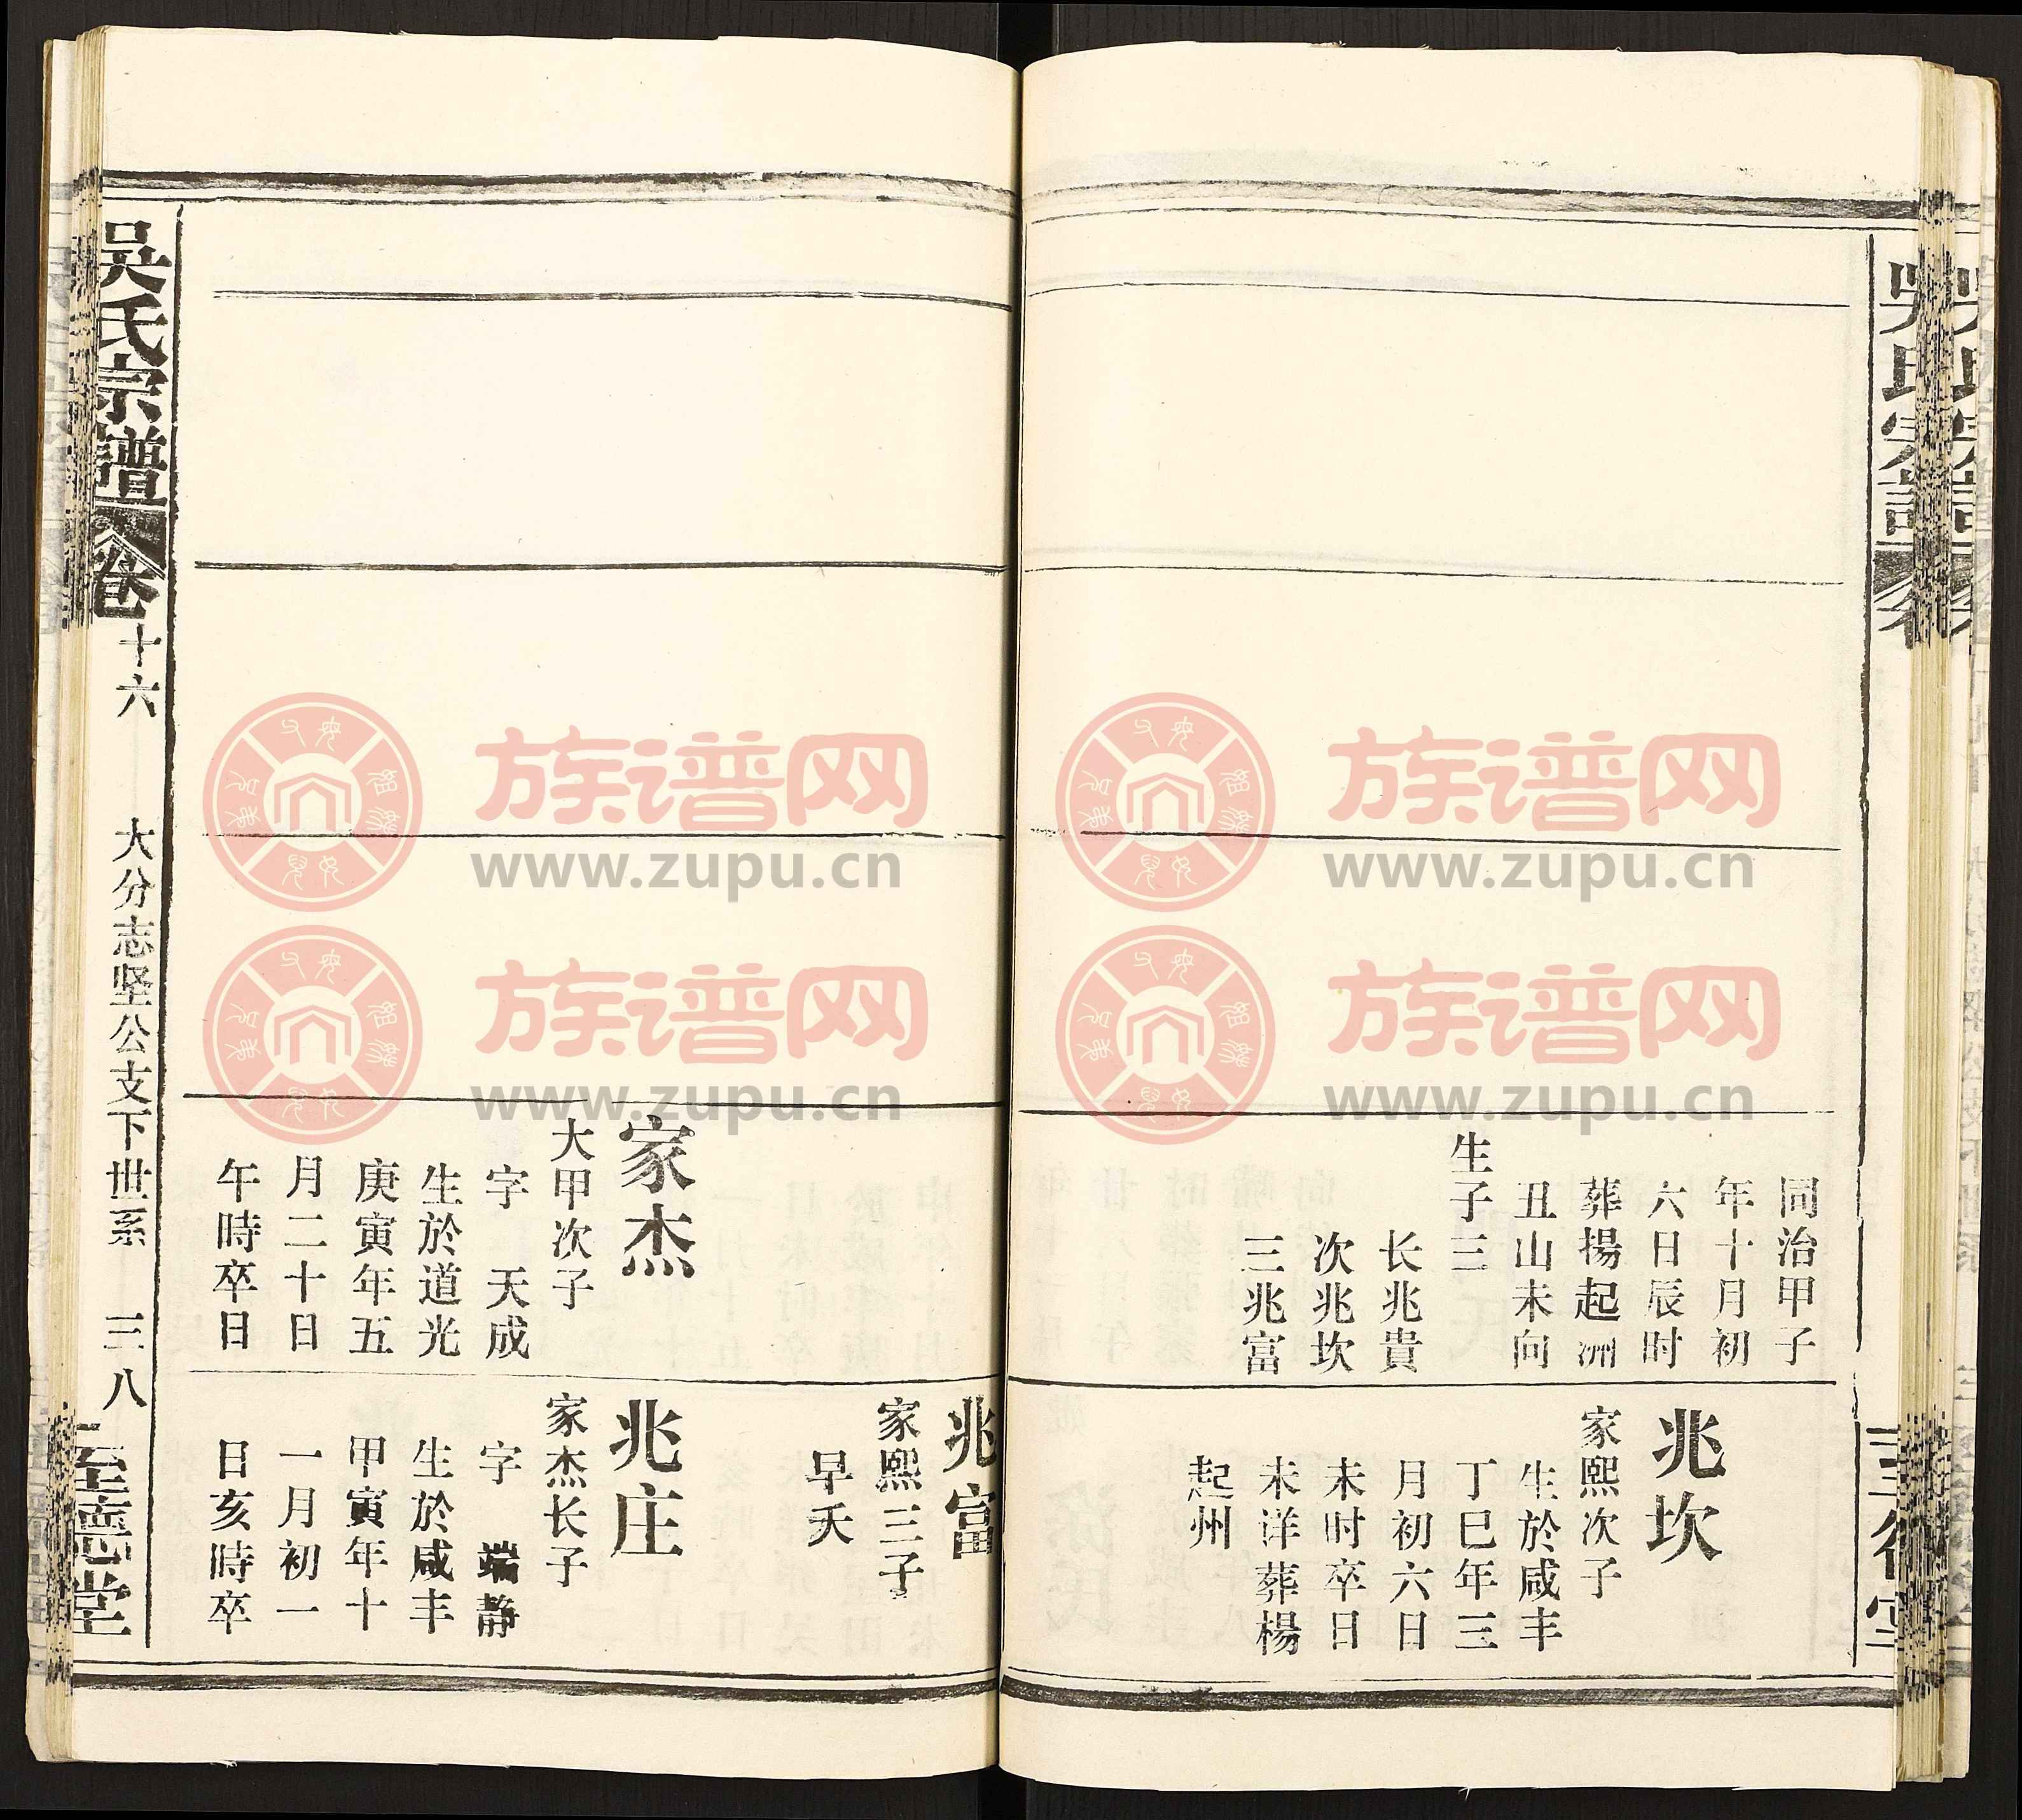 同治甲子
年十月初
六日辰时
葬揚起洲
丑山未向
生子三
长兆貴
次兆坎
三兆富
兆坎
家熙次子
生於咸丰
丁巳年三
月初六日
未时卒日
未详葬楊
起州
兆富
家熙三子
早夭
家杰
大甲次子
字 天成
生於道光
庚寅年五
月二十日
午時卒日
兆庄
家杰长子
字 端静
生於咸丰
甲寅年十
一月初一
日亥時卒
吴氏宗譜 卷十六 大分志坚公支下世系 三八 至德堂
族谱网
www.zupu.cn
族谱网
www.zupu.cn
族谱网
www.zupu.cn
族谱网
www.zupu.cn